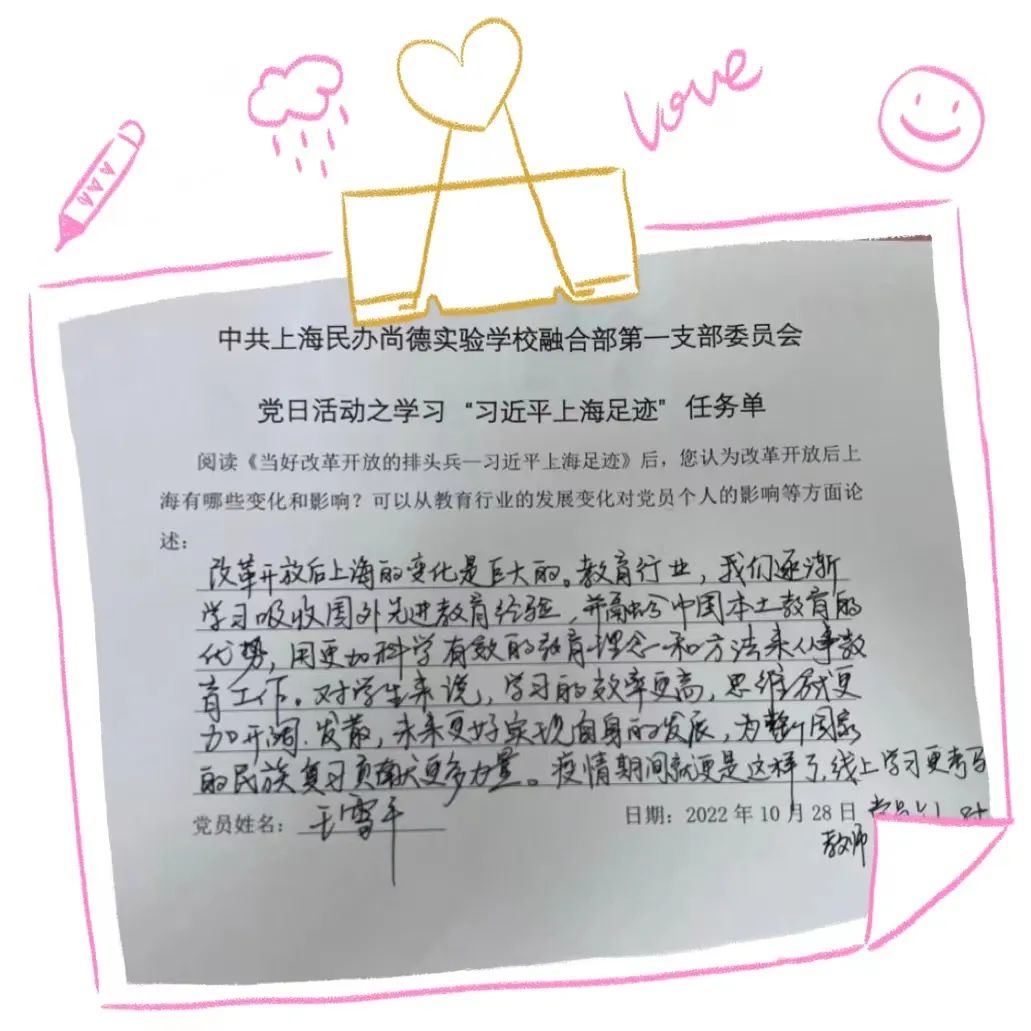 Love
中共上海民办尚德实验学校融合部第一支部委员会
党日活动之学习“习近平上海足迹”任务单
阅读《当好改革开放的排头兵—习近平上海足迹》后，您认为改革开放后上
海有哪些变化和影响？可以从教育行业的发展变化对党员个人的影响等方面论
述：
改革开放后上海的变化是巨大的。教育行业，我们逐渐
学习吸收国外先进教育经验，并融合中国本土教育的
优势，用更加科学有效的教育理念和方法来从事教
育工作。对学生来说，学习的效率更高，思维就更
加开阔、发散，未来更好实现自身的发展，为整个国家
的民族复习贡献更多力量。疫情期间就更是这样了，线上学习更考
党员姓名：王雪平 日期：2022年10月28日
教师